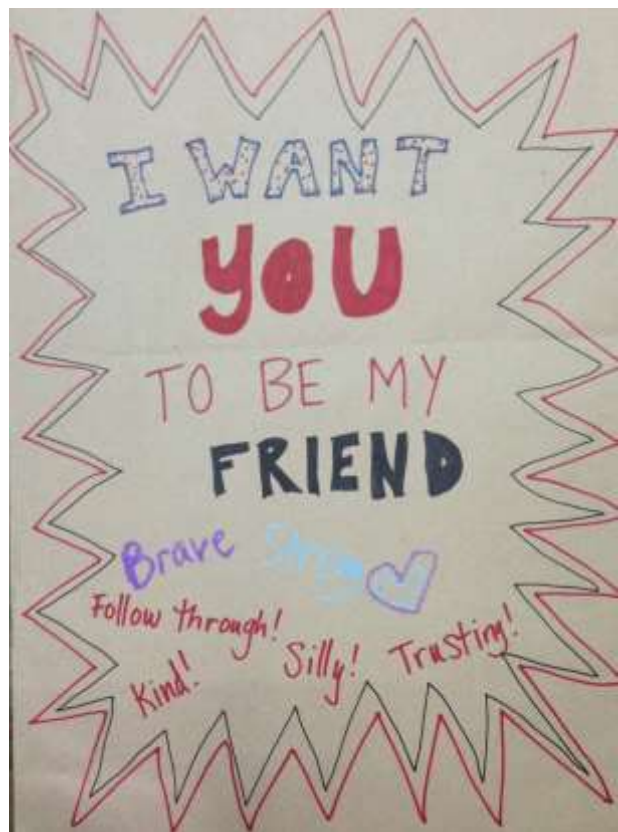 I WANT
YOU
TO BE MY
FRIEND
Brave
Follow through!
Silly! Trusting!
Kind!